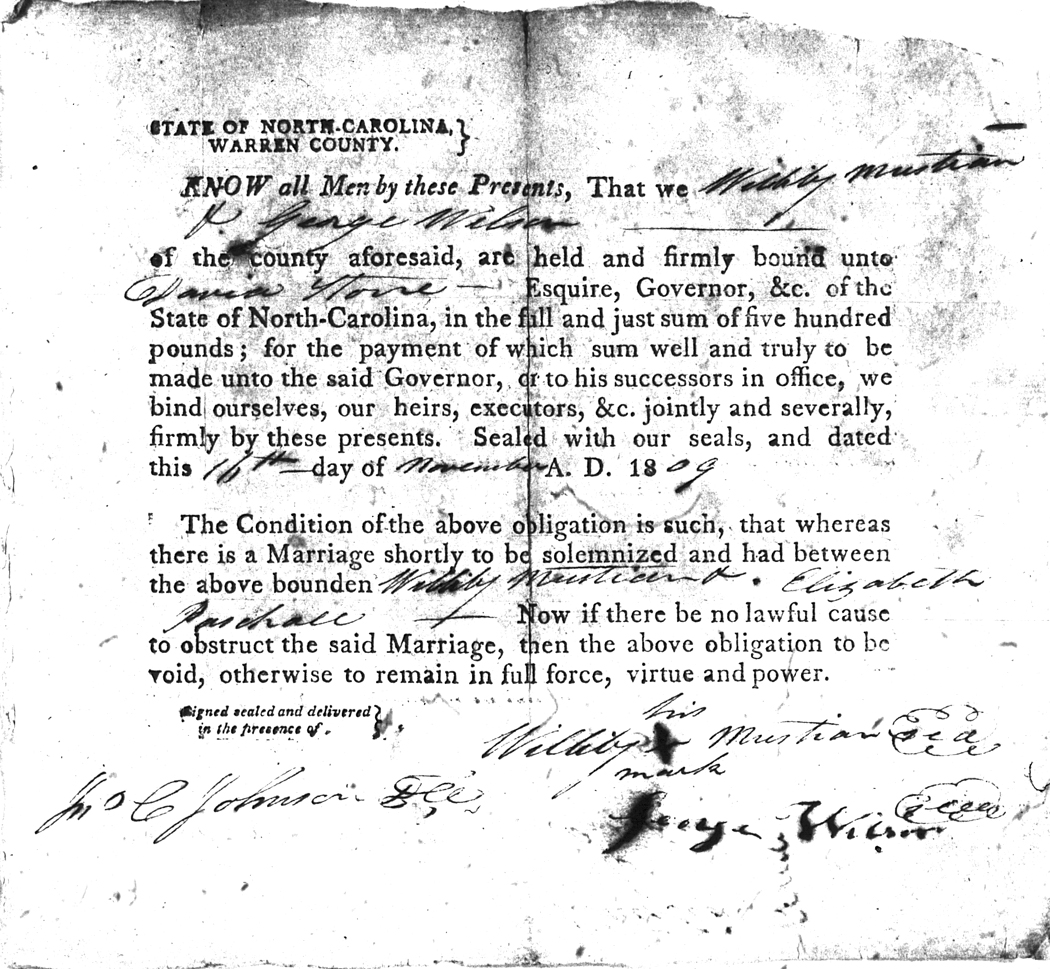 STATE OF NORTH-CAROLINA,
WARREN COUNTY.
KNOW all Men by these Presents, That we Williby Mustian
& George Wilson
of the county aforesaid, are held and firmly bound unto
David Stone — Esquire, Governor, &c. of the
State of North-Carolina, in the full and just sum of five hundred
pounds; for the payment of which sum well and truly to be
made unto the said Governor, or to his successors in office, we
bind ourselves, our heirs, executors, &c. jointly and severally,
firmly by these presents. Sealed with our seals, and dated
this 16th day of November A. D. 1809
The Condition of the above obligation is such, that whereas
there is a Marriage shortly to be solemnized and had between
the above bounden Williby Mustian & Elizabeth
Paschall — Now if there be no lawful cause
to obstruct the said Marriage, then the above obligation to be
void, otherwise to remain in full force, virtue and power.
Signed sealed and delivered
in the presence of.
his
Williby Mustian
mark
Jno C Johnson
George Wilson